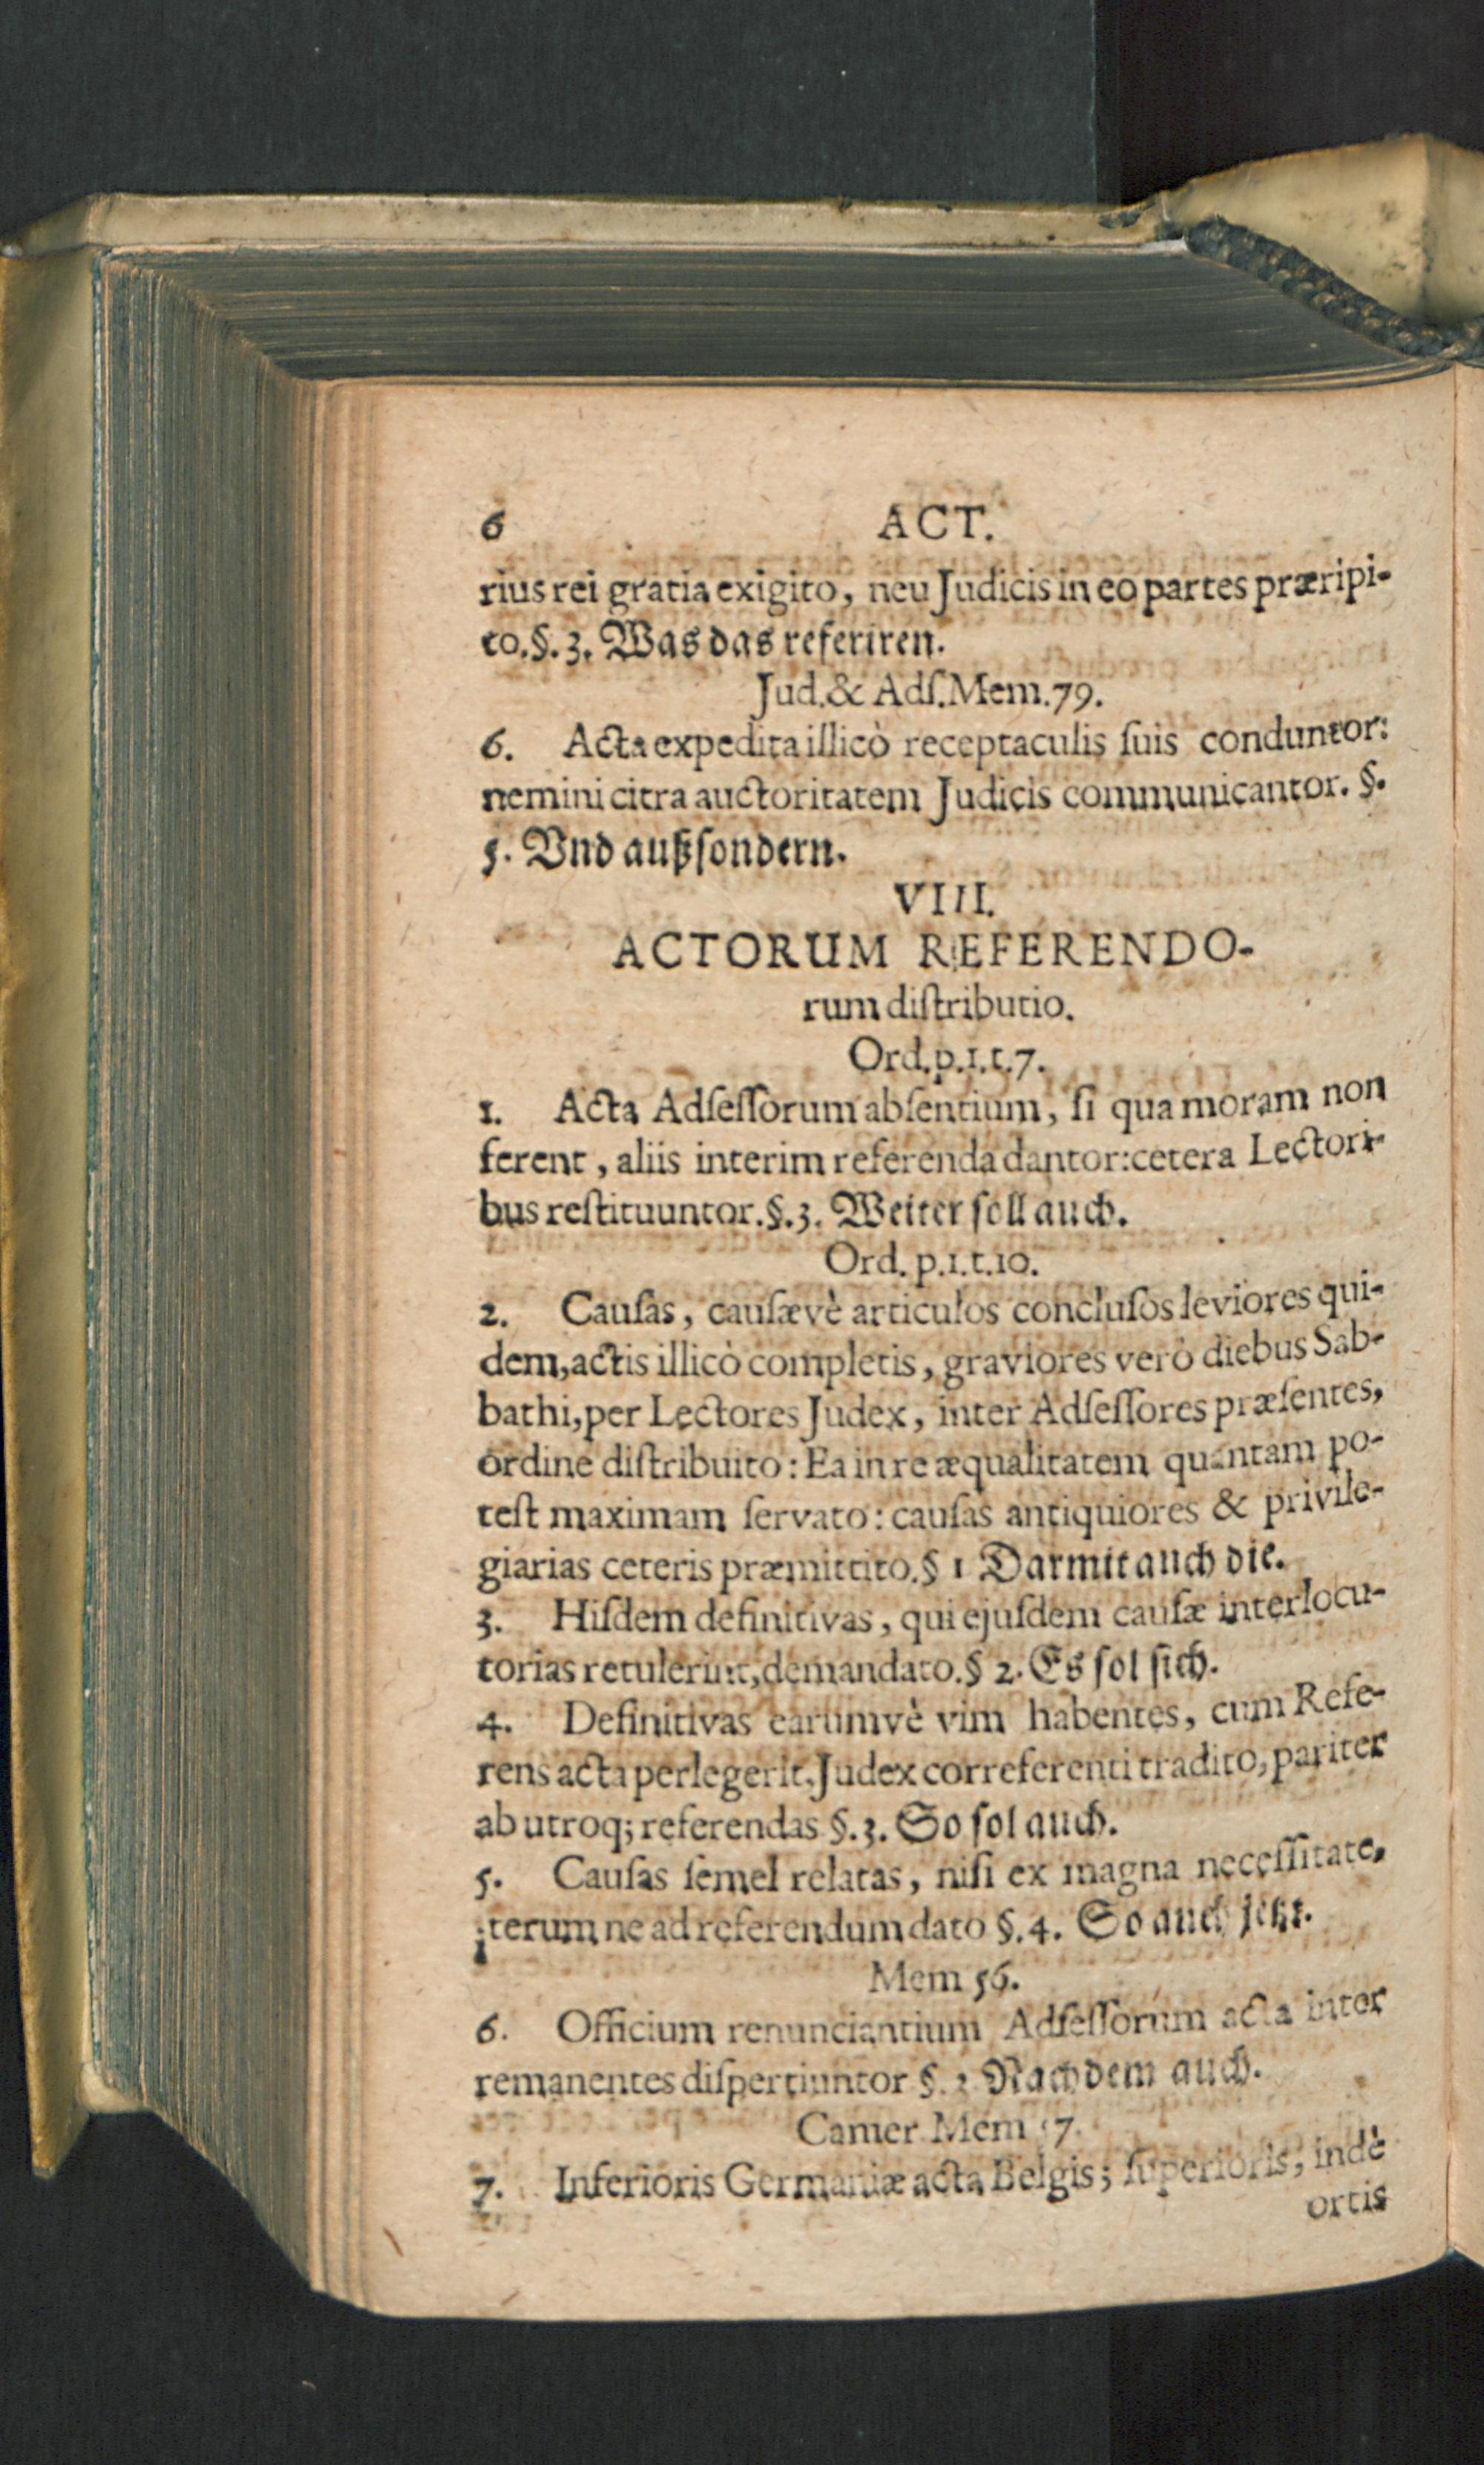 6 ACT.
rius rei gratia exigito, neu Judicis in eo partes præripi-
to. §. 3. Was das referiren.
Jud. & Adſ. Mem. 79.
6. Acta expedita illicò receptaculis ſuis conduntor:
nemini citra auctoritatem Judicis communicantor. §.
5. Vnd außſondern.
VIII.
ACTORUM REFERENDO-
rum diſtributio.
Ord. p. 1. t. 7.
1. Acta Adſeſſorum abſentium, ſi qua moram non
ferent, aliis interim referenda dantor: cetera Lectori-
bus reſtituuntor. §. 3. Weiter ſoll auch.
Ord. p. 1. t. 10.
2. Cauſas, cauſævè articulos concluſos leviores qui-
dem, actis illicò completis, graviores verò diebus Sab-
bathi, per Lectores Judex, inter Adſeſſores præſentes,
ordine diſtribuito: Ea in re æqualitatem quantam po-
teſt maximam ſervato: cauſas antiquiores & privile-
giarias ceteris præmittito. § 1 Darmit auch die.
3. Hiſdem definitivas, qui ejuſdem cauſæ interlocu-
torias retulerint, demandato. § 2. Es ſol ſich.
4. Definitivas earumvè vim habentes, cum Refe-
rens acta perlegerit, Judex correferenti tradito, pariter
ab utroq; referendas §. 3. So ſol auch.
5. Cauſas ſemel relatas, niſi ex magna neceſſitate,
iterum ne ad referendum dato §. 4. So auch jetzt.
Mem 56.
6. Officium renunciantium Adſeſſorum acta inter
remanentes diſpertiuntor §. Nachdem auch.
Camer Mem 7.
7. Inferioris Germaniæ acta Belgis; ſuperioris, indè
ortis